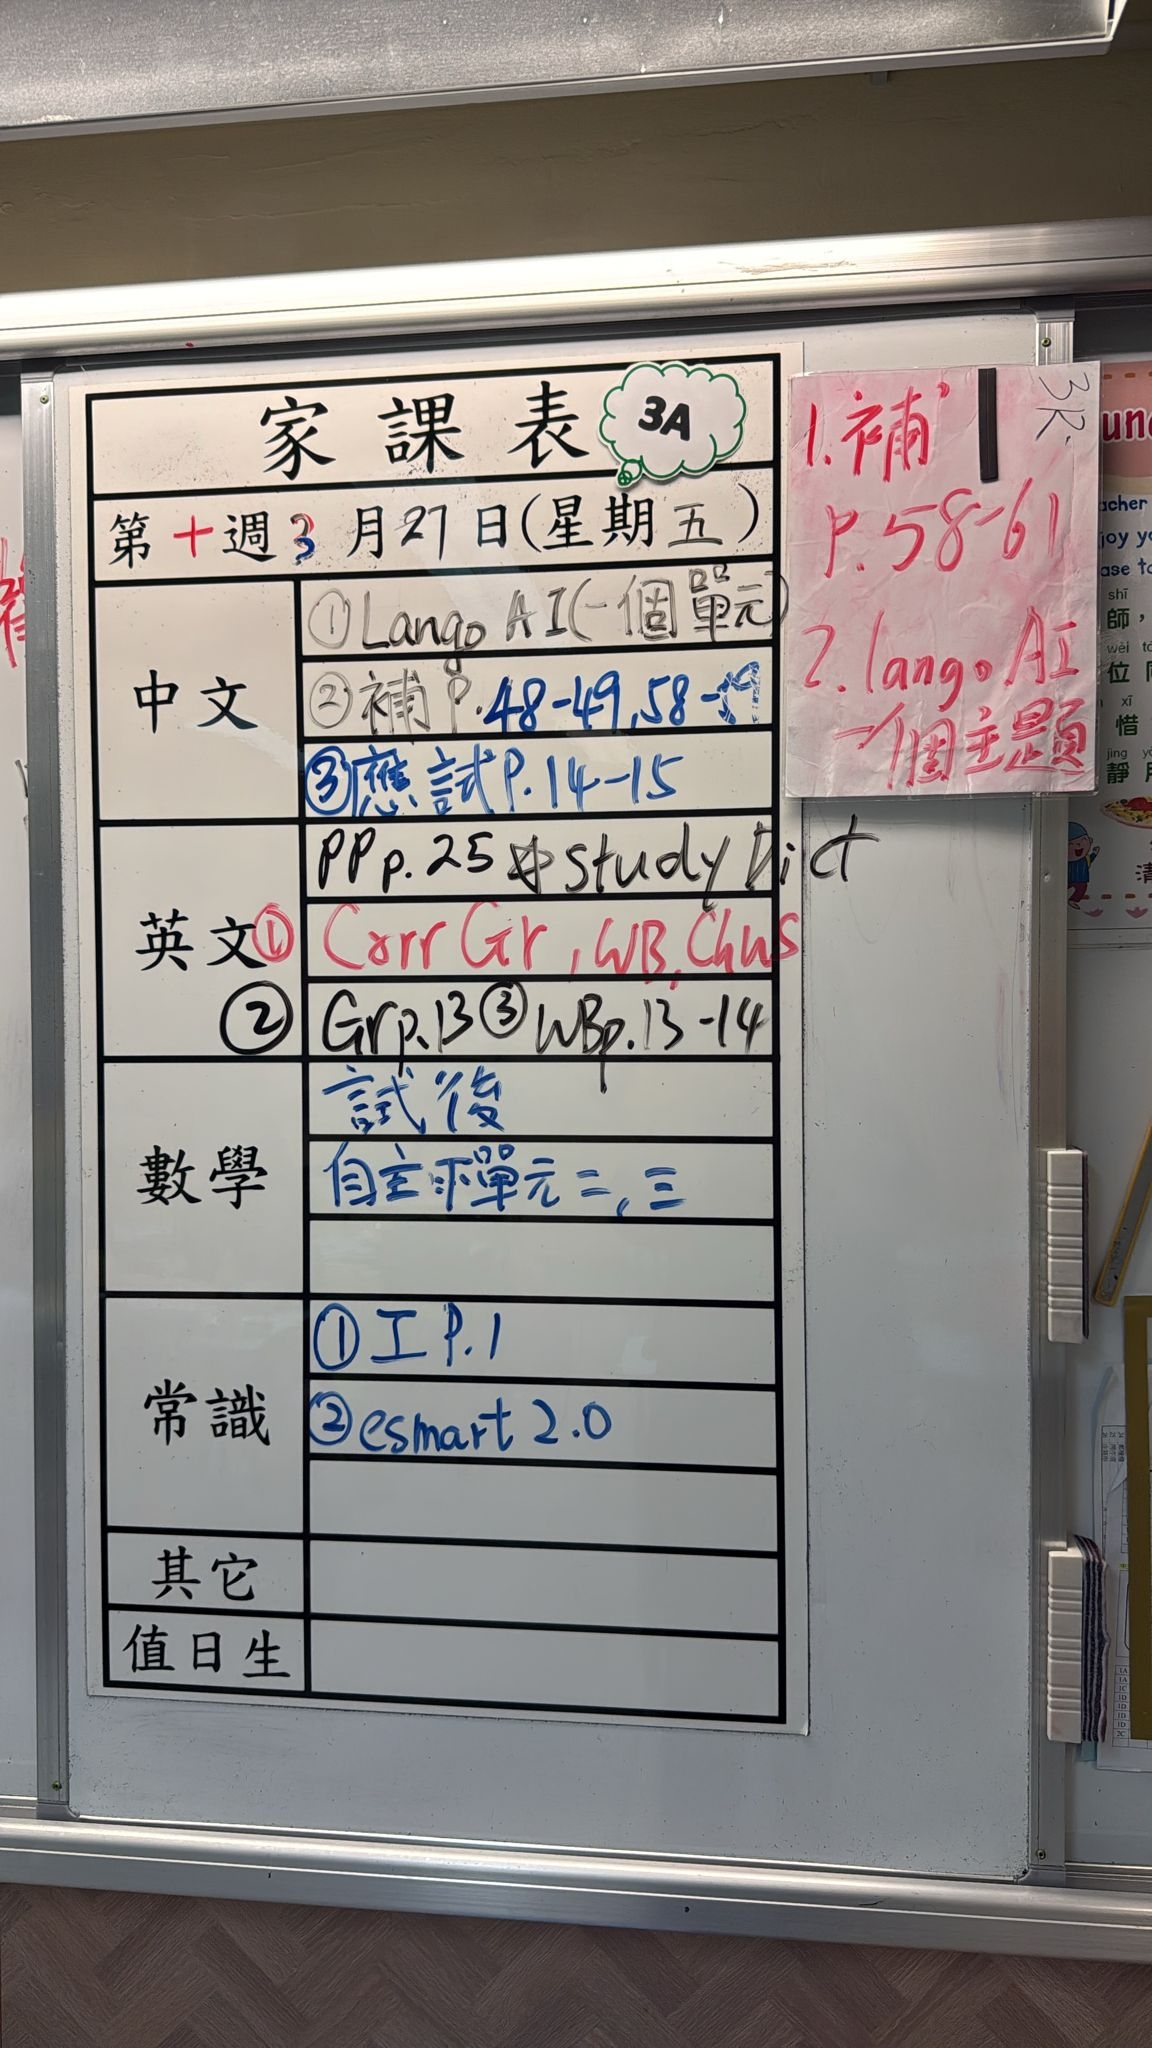 家課表 3A
第十週3月27日(星期五)
中文
①Lango AI(一個單元)
②補P.48-49,58-59
③應試P.14-15
英文
PP p.25 study Dict
① Corr Gr, WB,
② Gr p.13 ③WB p.13-14
數學
試後
自主 單元二,三
常識
①工P.1
②esmart 2.0
其它
值日生
3R.
1.補
P.58-61
2.lango AI
一個主題
acher
joy yo
ase to
shī
師，
wèi
位
xī
惜
jìng
靜